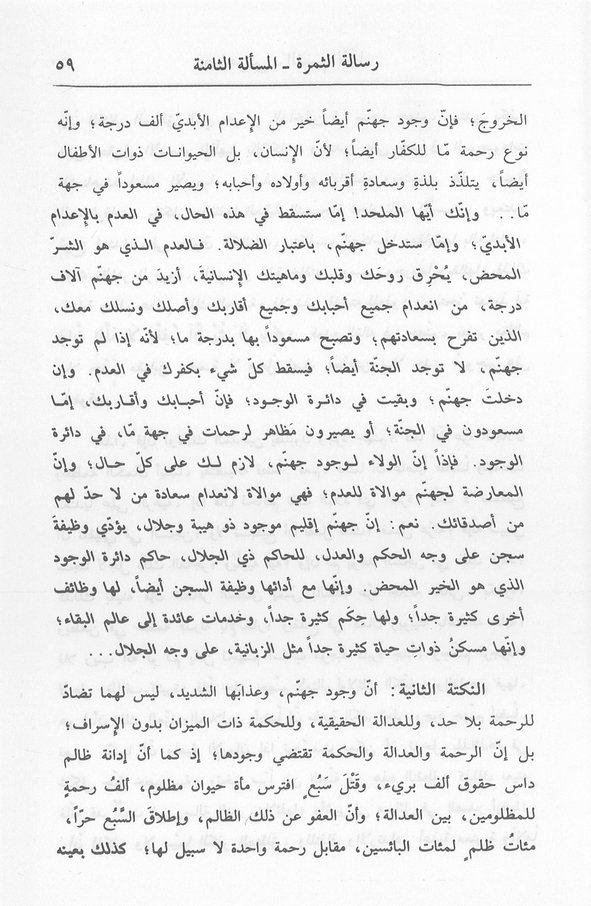 رسالة الثمرة - المسألة الثامنة ٥٩
الخروجَ؛ فإنّ وجود جهنّم أيضاً خير من الإعدام الأبديّ ألف درجة؛ وإنّه
نوع رحمة مّا للكفّار أيضاً؛ لأنّ الإنسان، بل الحيوانات ذوات الأطفال
أيضاً، يتلذّذ بلذةِ وسعادةِ أقربائه وأولاده وأحبابه؛ ويصير مسعوداً في جهة
مّا.. وإنّك أيّها الملحد! إمّا ستسقط في هذه الحال، في العدم بالإعدام
الأبديّ؛ وإمّا ستدخل جهنّم، باعتبار الضلالة. فالعدم الذي هو الشرّ
المحض، يُحْرِق روحَك وقلبك وماهيتك الإنسانيةَ، أزيدَ من جهنّم آلاف
درجة، من انعدام جميع أحبابك وجميع أقاربك وأصلك ونسلك معك،
الذين تفرح بسعادتهم؛ وتصبح مسعوداً بها بدرجة ما؛ لأنّه إذا لم توجد
جهنّم، لا توجد الجنّة أيضاً؛ فيسقط كلّ شيء بكفرك في العدم. وإن
دخلتَ جهنّم؛ وبقيت في دائرة الوجود؛ فإنّ أحبابك وأقاربك، إمّا
مسعودون في الجنّة؛ أو يصيرون مَظاهر لرحمات في جهة مّا، في دائرة
الوجود. فإذاً إنّ الولاء لوجود جهنّم، لازم لك على كلّ حال؛ وإنّ
المعارضة لجهنّم موالاة للعدم؛ فهي موالاة لانعدام سعادة من لا حدّ لهم
من أصدقائك. نعم: إنّ جهنّم إقليم موجود ذو هيبة وجلال، يؤدّي وظيفةَ
سجن على وجه الحكم والعدل، للحاكم ذي الجلال، حاكم دائرة الوجود
الذي هو الخير المحض. وإنّها مع أدائها وظيفة السجن أيضاً، لها وظائف
أخرى كثيرة جداً؛ ولها حِكَم كثيرة جداً، وخدمات عائدة إلى عالم البقاء؛
وإنّها مسكنُ ذواتِ حياة كثيرة جداً مثل الزبانية، على وجه الجلال...
النكتة الثانية: أنّ وجود جهنّم، وعذابَها الشديد، ليس لهما تضادّ
للرحمة بلا حد، وللعدالة الحقيقية، وللحكمة ذات الميزان بدون الإسراف؛
بل إنّ الرحمة والعدالة والحكمة تقتضي وجودها؛ إذ كما أنّ إدانة ظالم
داس حقوق ألف بريء، وقَتْلَ سَبُعٍ افترس مأة حيوان مظلوم، ألفُ رحمةٍ
للمظلومين، بين العدالة؛ وأنّ العفو عن ذلك الظالم، وإطلاقَ السَّبُع حرّاً،
مئاتُ ظلمٍ لمئات البائسين، مقابل رحمة واحدة لا سبيل لها؛ كذلك بعينه